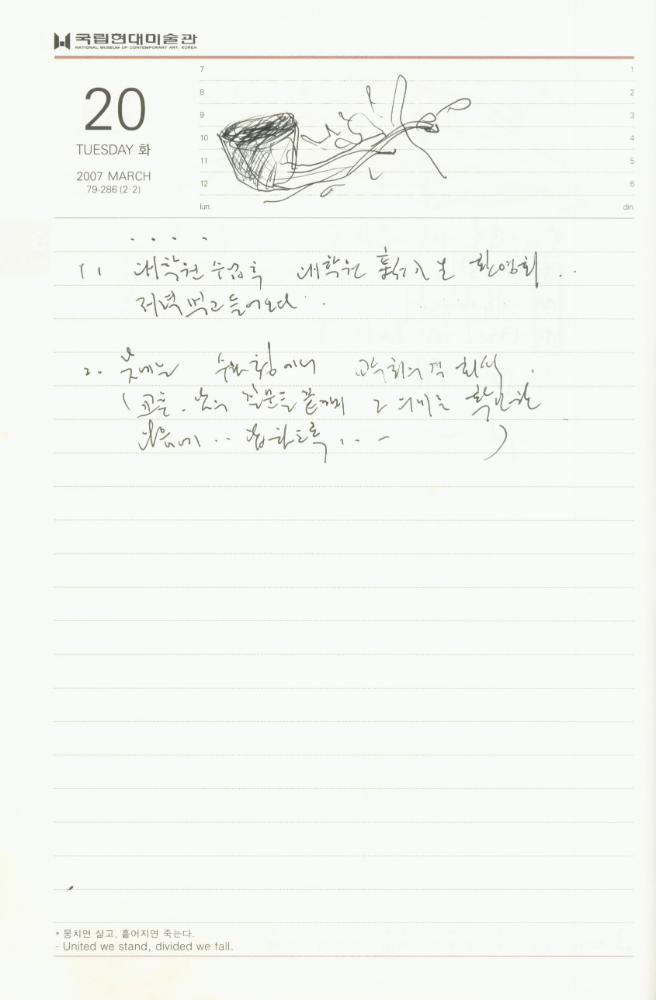 국립현대미술관
NATIONAL MUSEUM OF CONTEMPORARY ART, KOREA
20
TUESDAY 화
2007 MARCH
79-286 (2·2)
7
8
9
10
11
12
lun.
1
2
3
4
5
6
din.
1. 대학원 수업 후 대학원 환영회 ..
저녁 먹고 들어오다 ..
2. 낮에는 교수회의 겸 회식 .
( 교훈. 남의 질문을 끝까지 그 의미를 확인한
다음에 .. 답하도록 ... - )
* 뭉치면 살고, 흩어지면 죽는다.
- United we stand, divided we fall.